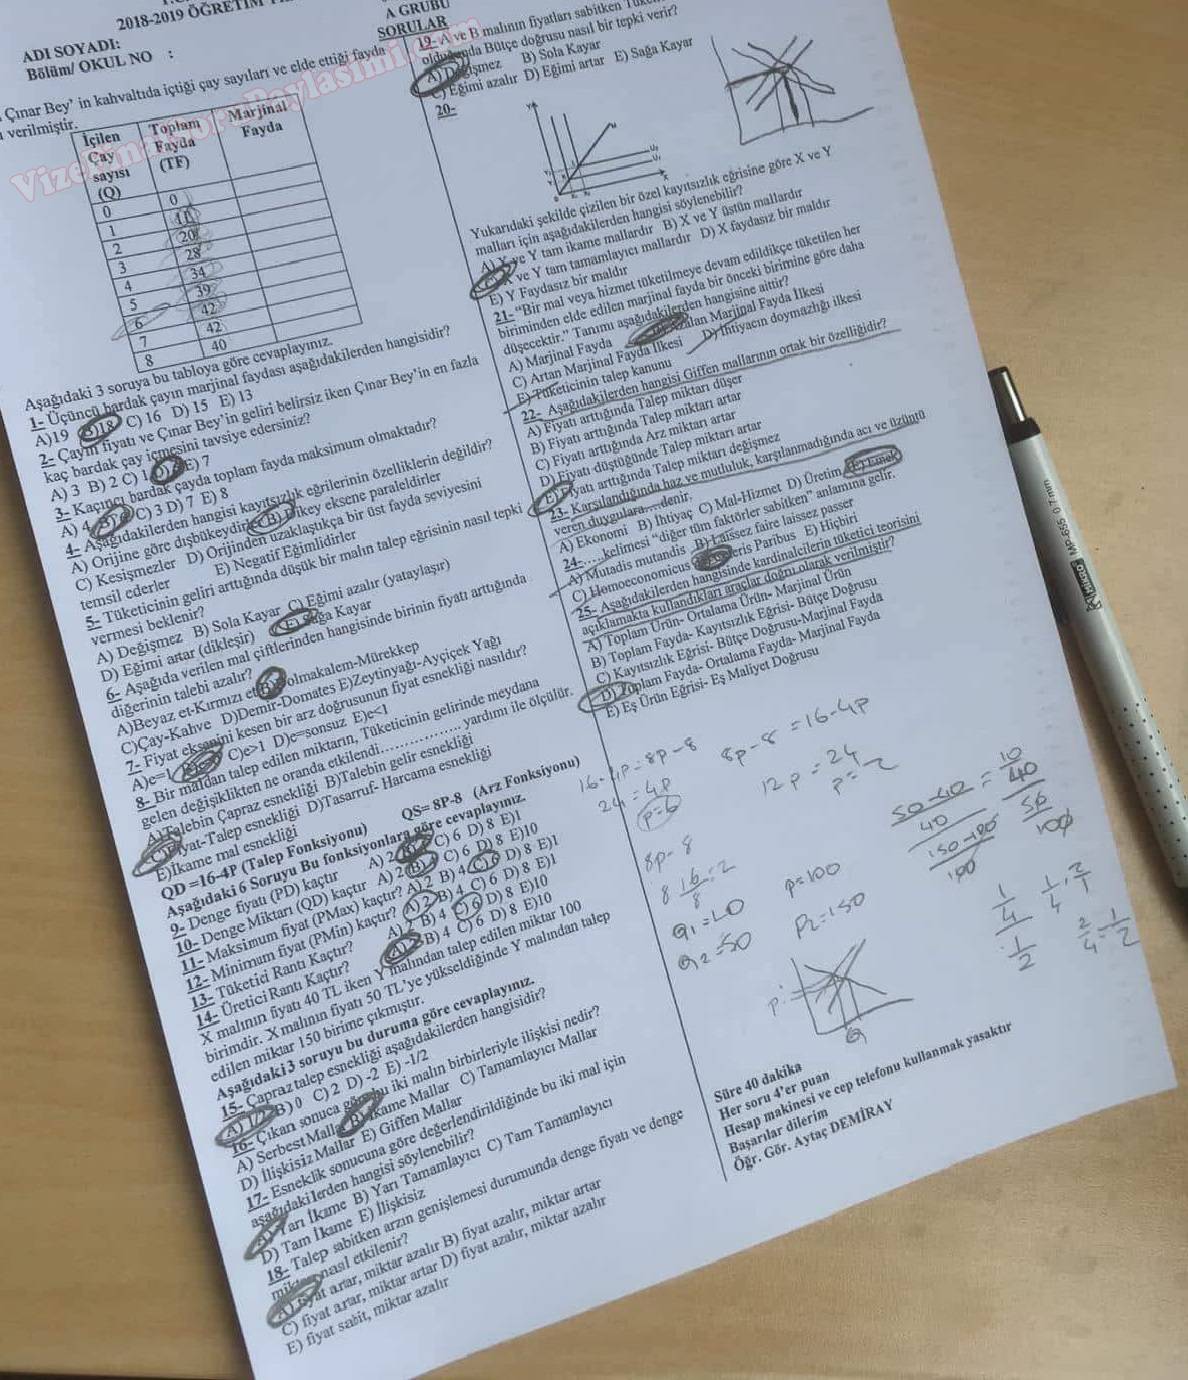 2018-2019 ÖĞRETİM
A GRUBU
SORULAR
ADI SOYADI:
Bölüm/ OKUL NO :
Çınar Bey' in kahvaltıda içtiği çay sayıları ve elde ettiği fayda
verilmiştir.
İçilen Çay sayısı (Q)
Toplam Fayda (TF)
Marjinal Fayda
0 0
1 11
2 20
3 28
4 34
5 39
6 42
7 42
8 40
Aşağıdaki 3 soruya bu tabloya göre cevaplayınız.
1- Üçüncü bardak çayın marjinal faydası aşağıdakilerden hangisidir?
A)19 B)18 C) 16 D) 15 E) 13
2- Çayın fiyatı ve Çınar Bey'in geliri belirsiz iken Çınar Bey'in en fazla
kaç bardak çay içmesini tavsiye edersiniz?
A) 3 B) 2 C) 1 E) 7
3- Kaçıncı bardak çayda toplam fayda maksimum olmaktadır?
A) 4 C) 3 D) 7 E) 8
4- Aşağıdakilerden hangisi kayıtsızlık eğrilerinin özelliklerin değildir?
A) Orijine göre dışbükeydir B) Dikey eksene paraleldirler
C) Kesişmezler D) Orijinden uzaklaştıkça bir üst fayda seviyesini
temsil ederler E) Negatif Eğimlidirler
5- Tüketicinin geliri arttığında düşük bir malın talep eğrisinin nasıl tepki
vermesi beklenir?
A) Değişmez B) Sola Kayar C) Eğimi azalır (yataylaşır)
D) Eğimi artar (dikleşir) E) Sağa Kayar
6- Aşağıda verilen mal çiftlerinden hangisinde birinin fiyatı arttığında
diğerinin talebi azalır?
A)Beyaz et-Kırmızı et B)Dolmakalem-Mürekkep
C)Çay-Kahve D)Demir-Domates E)Zeytinyağı-Ayçiçek Yağı
7- Fiyat eksenini kesen bir arz doğrusunun fiyat esnekliği nasıldır?
A)e=1 C)e>1 D)e=sonsuz E)e<1
8- Bir maldan talep edilen miktarın, Tüketicinin gelirinde meydana
gelen değişiklikten ne oranda etkilendi................yardımı ile ölçülür.
A)Talebin Çapraz esnekliği B)Talebin gelir esnekliği
C)Fiyat-Talep esnekliği D)Tasarruf- Harcama esnekliği
E)İkame mal esnekliği
QD =16-4P (Talep Fonksiyonu) QS= 8P-8 (Arz Fonksiyonu)
Aşağıdaki 6 Soruyu Bu fonksiyonlara göre cevaplayınız.
9- Denge fiyatı (PD) kaçtır A) 2 C) 6 D) 8 E)1
10- Denge Miktarı (QD) kaçtır A) 2 B) C) 6 D) 8 E)10
11- Maksimum fiyat (PMax) kaçtır? A) 2 B) 4 D) 8 E)1
12- Minimum fiyat (PMin) kaçtır? A) 2 B) 4 C) 6 D) 8 E)1
13- Tüketici Rantı Kaçtır? A) 2 B) 4 C) 6 D) 8 E)10
14- Üretici Rantı Kaçtır? A) 2 B) 4 C) 6 D) 8 E)10
X malının fiyatı 40 TL iken Y malından talep edilen miktar 100
birimdir. X malının fiyatı 50 TL'ye yükseldiğinde Y malından talep
edilen miktar 150 birime çıkmıştır.
Aşağıdaki 3 soruyu bu duruma göre cevaplayınız.
15- Çapraz talep esnekliği aşağıdakilerden hangisidir?
A) 1/2 B) 0 C) 2 D) -2 E) -1/2
16- Çıkan sonuca göre bu iki malın birbirleriyle ilişkisi nedir?
A) Serbest Mallar B) İkame Mallar C) Tamamlayıcı Mallar
D) İlişkisiz Mallar E) Giffen Mallar
17- Esneklik sonucuna göre değerlendirildiğinde bu iki mal için
aşağıdakilerden hangisi söylenebilir?
A) Yarı İkame B) Yarı Tamamlayıcı C) Tam Tamamlayıcı
D) Tam İkame E) İlişkisiz
18- Talep sabitken arzın genişlemesi durumunda denge fiyatı ve denge
miktarı nasıl etkilenir?
A) fiyat artar, miktar azalır B) fiyat azalır, miktar artar
C) fiyat artar, miktar artar D) fiyat azalır, miktar azalır
E) fiyat sabit, miktar azalır
ve B malının fiyatları sabitken
olduğunda Bütçe doğrusu nasıl bir tepki verir?
A) Değişmez B) Sola Kayar
C) Eğimi azalır D) Eğimi artar E) Sağa Kayar
20-
Yukarıdaki şekilde çizilen bir özel kayıtsızlık eğrisine göre X ve Y
malları için aşağıdakilerden hangisi söylenebilir?
A) X ve Y tam ikame mallardır B) X ve Y üstün mallardır
C) X ve Y tam tamamlayıcı mallardır D) X faydasız bir maldır
E) Y Faydasız bir maldır
21- "Bir mal veya hizmet tüketilmeye devam edildikçe tüketilen her
biriminden elde edilen marjinal fayda bir önceki birimine göre daha
düşecektir." Tanımı aşağıdakilerden hangisine aittir?
A) Marjinal Fayda Azalan Marjinal Fayda İlkesi
C) Artan Marjinal Fayda İlkesi D) İhtiyacın doymazlığı ilkesi
E) Tüketicinin talep kanunu
22- Aşağıdakilerden hangisi Giffen mallarının ortak bir özelliğidir?
A) Fiyatı arttığında Talep miktarı düşer
B) Fiyatı arttığında Talep miktarı artar
C) Fiyatı arttığında Arz miktarı artar
D) Fiyatı düştüğünde Talep miktarı artar
E) Fiyatı arttığında Talep miktarı değişmez
23- Karşılandığında haz ve mutluluk, karşılanmadığında acı ve üzüntü
veren duygulara....denir.
A) Ekonomi B) İhtiyaç C) Mal-Hizmet D) Üretim E) Emek
24-.....kelimesi "diğer tüm faktörler sabitken" anlamına gelir.
A) Mutadis mutandis B) Laissez faire laissez passer
C) Homoeconomicus Ceteris Paribus E) Hiçbiri
25- Aşağıdakilerden hangisinde kardinalcilerin tüketici teorisini
açıklamakta kullandıkları araçlar doğru olarak verilmiştir?
A) Toplam Ürün- Ortalama Ürün- Marjinal Ürün
B) Toplam Fayda- Kayıtsızlık Eğrisi- Bütçe Doğrusu
C) Kayıtsızlık Eğrisi- Bütçe Doğrusu-Marjinal Fayda
D) Toplam Fayda- Ortalama Fayda- Marjinal Fayda
E) Eş Ürün Eğrisi- Eş Maliyet Doğrusu
16-4P=8P-8
24=4P
P=6
8P-8=16-4P
12P=24
P=2
8P-8
8 16/8=2
Q1=40
Q2=50
P=100
P2=150
Süre 40 dakika
Her soru 4'er puan
Hesap makinesi ve cep telefonu kullanmak yasaktır
Başarılar dilerim
Öğr. Gör. Aytaç DEMİRAY
VizeFinalSoruPaylasimi.com
MP-655 0.7 mm